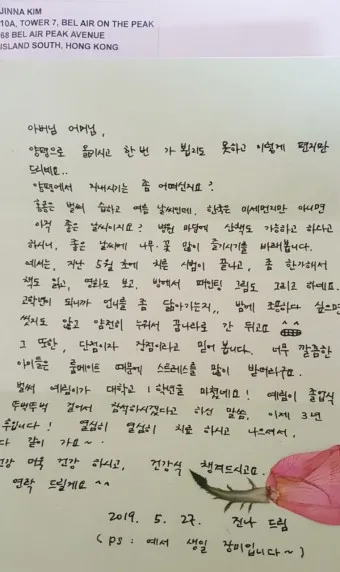 JINNA KIM
10A, TOWER 7, BEL AIR ON THE PEAK
68 BEL AIR PEAK AVENUE
ISLAND SOUTH, HONG KONG
아버님 어머님,
양평으로 옮기시고 한번 가 뵙지도 못하고 이렇게 편지만
드리네요..
양평에서 지내시기는 좀 어떠신지요?
홍콩은 벌써 습하고 여름 날씨인데, 한국은 미세먼지만 아니면
아직 좋은 날씨이지요? 병원 마당에 산책도 가능하고 하다고
하시니, 좋은 날씨에 나무·꽃 많이 즐기시기를 바래봅니다.
예서는, 지난 5월 초에 치룬 시험이 끝나고, 좀 한가해서
책도 읽고, 영화도 보고, 밤에서 페인팅 그림도 그리고 하네요.
고학년이 되니까 언니를 좀 닮아가는지,, 밤에 조용하다 싶으면
씻지도 않고 얌전히 누워서 꿈나라로 간 뒤고요 ^^
그 또한, 단점이자 장점이라고 믿어 봅니다. 너무 깔끔한
아이들은 룸메이트 때문에 스트레스를 많이 받더라구요.
벌써 예림이가 대학교 1학년을 마쳤네요! 예림이 졸업식
뚜벅뚜벅 걸어서 참석하시겠다고 하신 말씀, 이제 3년
우입니다! 열심히 열심히 치료 하시고 나으셔서,
다 같이 가요~.
건강 더욱 건강 하시고, 건강식 챙겨드시고요.
연락 드릴게요 ^^
2019. 5. 27. 진나 드림
(ps: 예서 생일 장미입니다~)